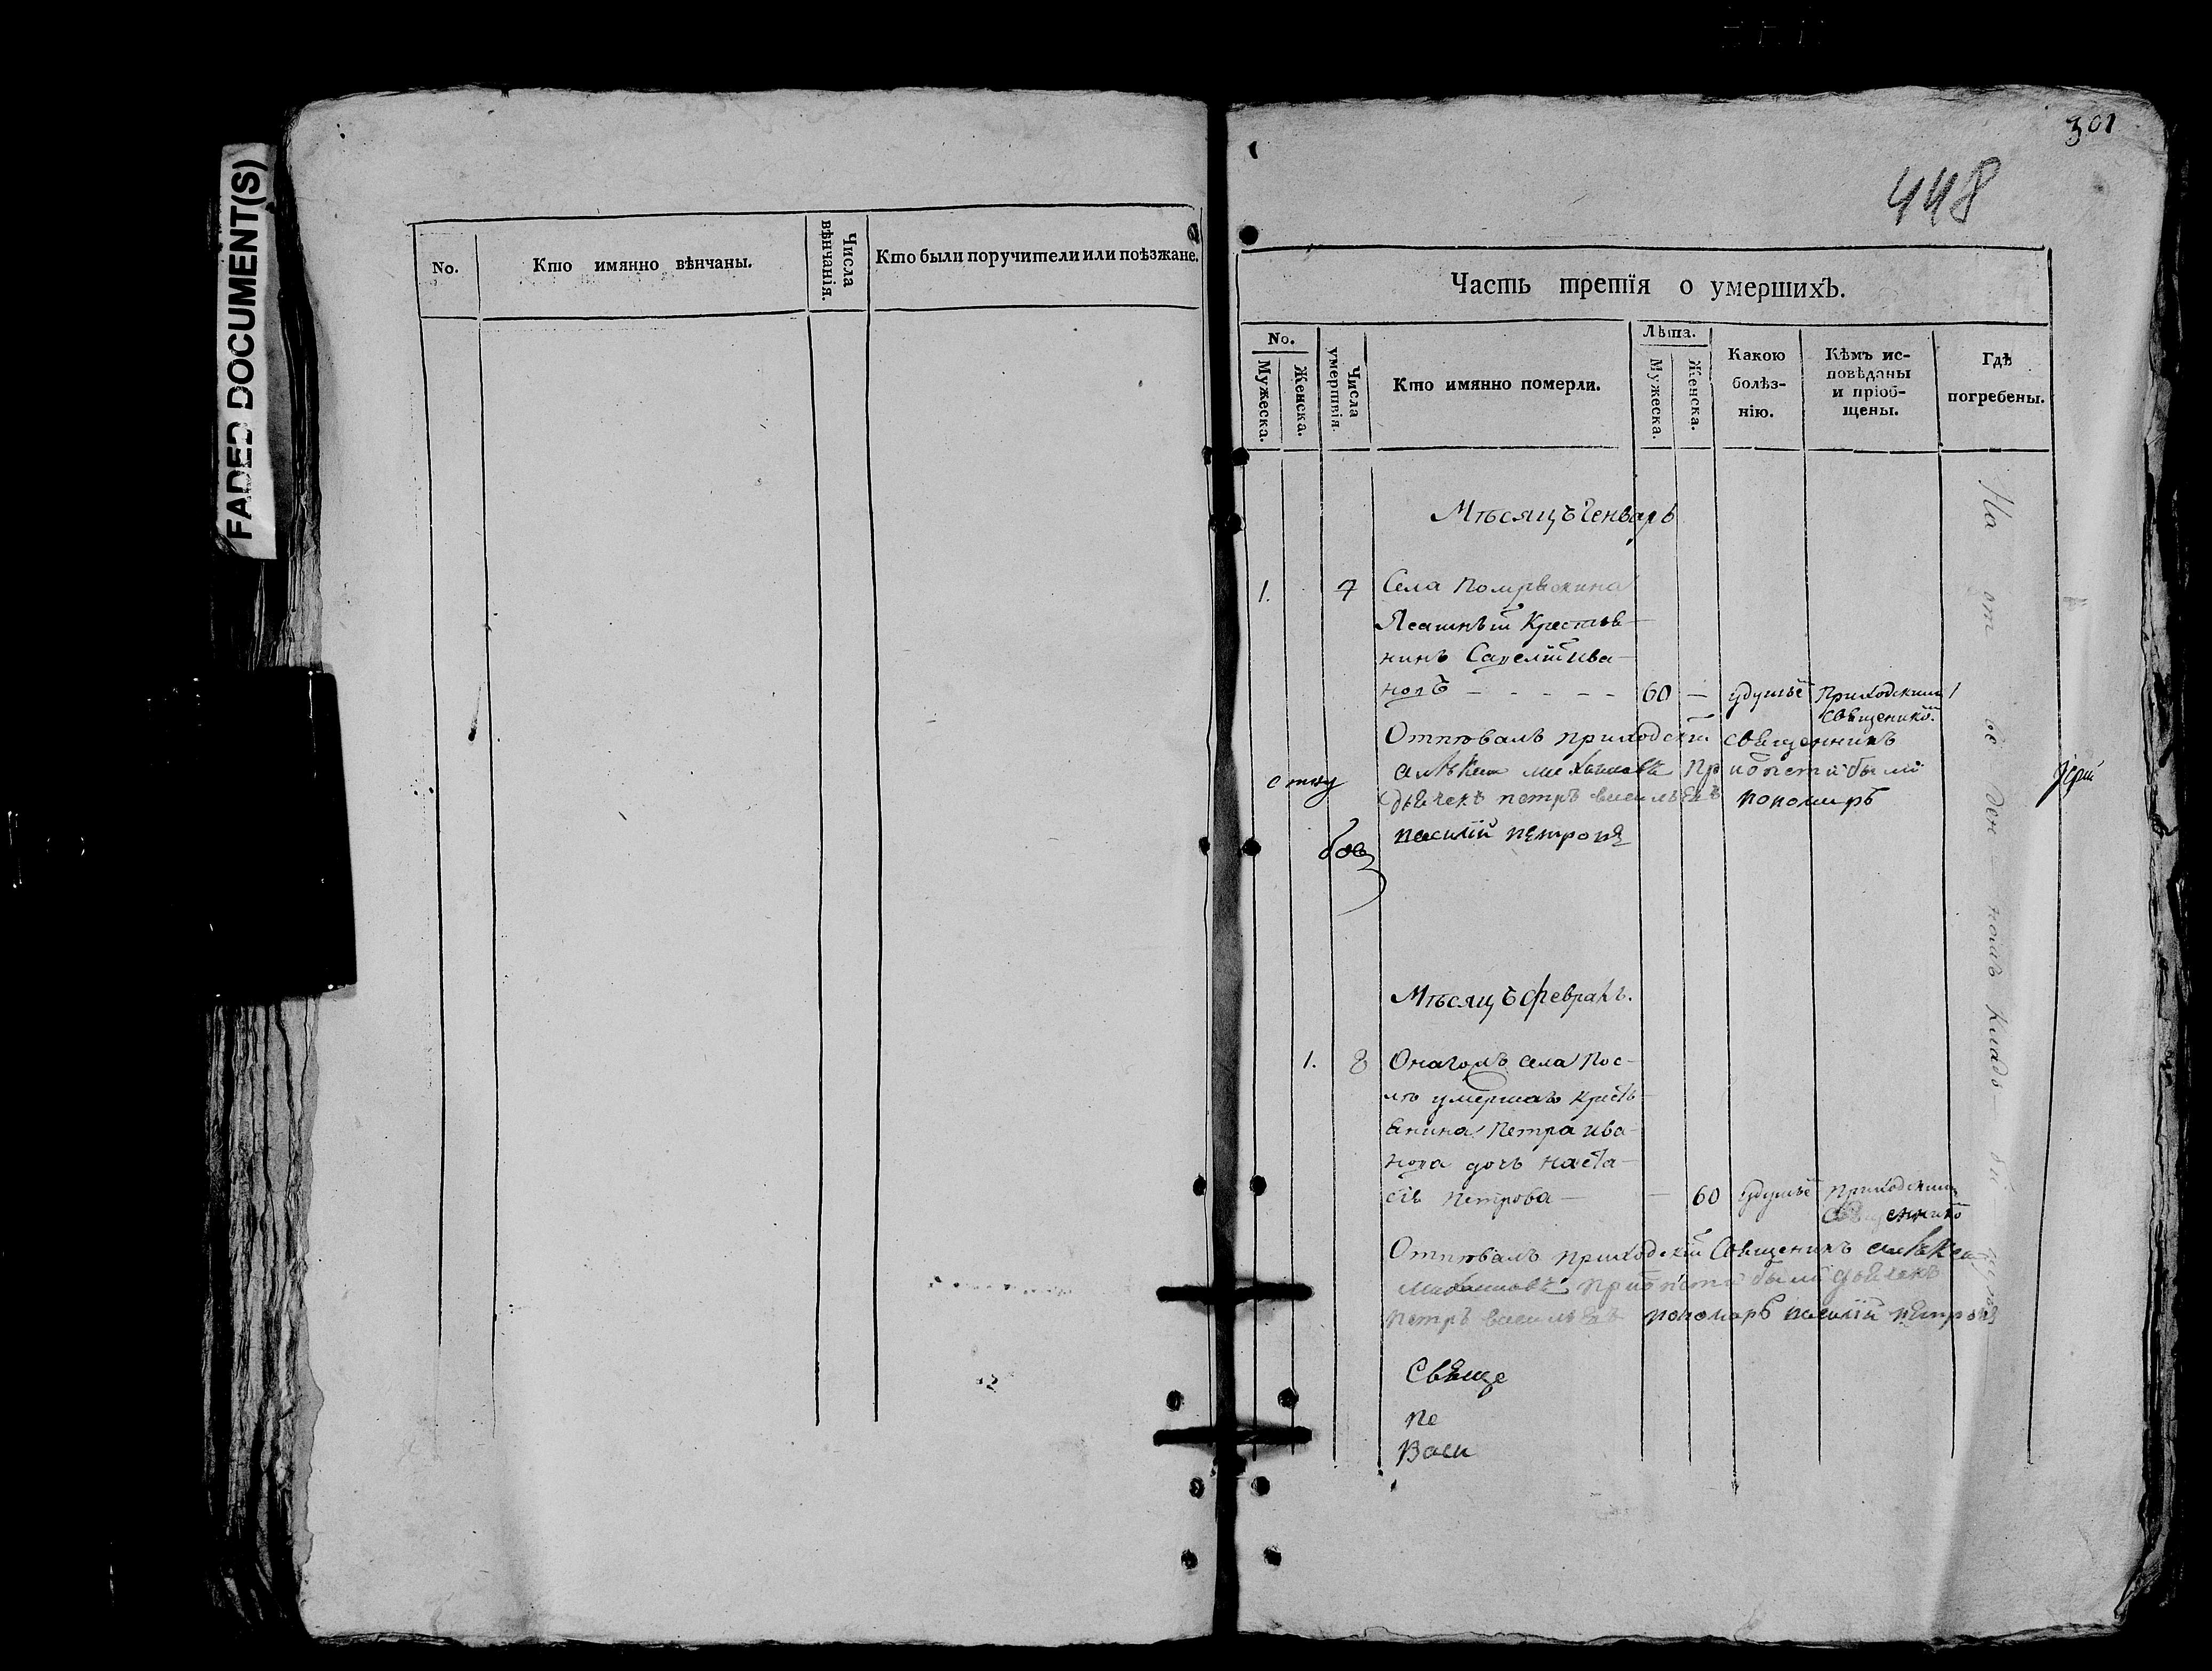 FADED DOCUMENT(S)
No.
Кто имянно вѣнчаны.
Числа вѣнчанія.
Кто были поручители или поѣзжане.
301
448
Часть третія о умершихъ.
No.
Мужеска.
Женска.
Числа умершвія.
Кто имянно померли.
Лѣта.
Мужеска.
Женска.
Какою болѣз-
нію.
Кѣмъ ис-
повѣданы
и пріоб-
щены.
Гдѣ
погребены.
Мѣсяцъ Генварь
1. 7 Села
Ясашный Крестья-
нинъ Савелій Ива-
новъ - - - - - 60 — удушьѐ Приходскимъ
священико.
Отпѣвалъ приходскій священникъ
алѣксѣи михаиловъ При отпетіи были
дьячекъ петръ васильевъ пономарь
василій петровъ
Мѣсяцъ Февраль.
1. 8 Онагожъ села Пос-
лѣ умершаго кресть-
янина Петра ива-
нова дочь наста-
сія петрова — — 60 удушьѐ приходскимъ
священнико
Отпѣвалъ приходскій священикъ алѣксѣи
михаиловъ при отпетіи были дьячекъ
петръ васильевъ пономарь василій петровъ
Свяще
Пе
Васи
На от ве ден номъ кладб
іерей